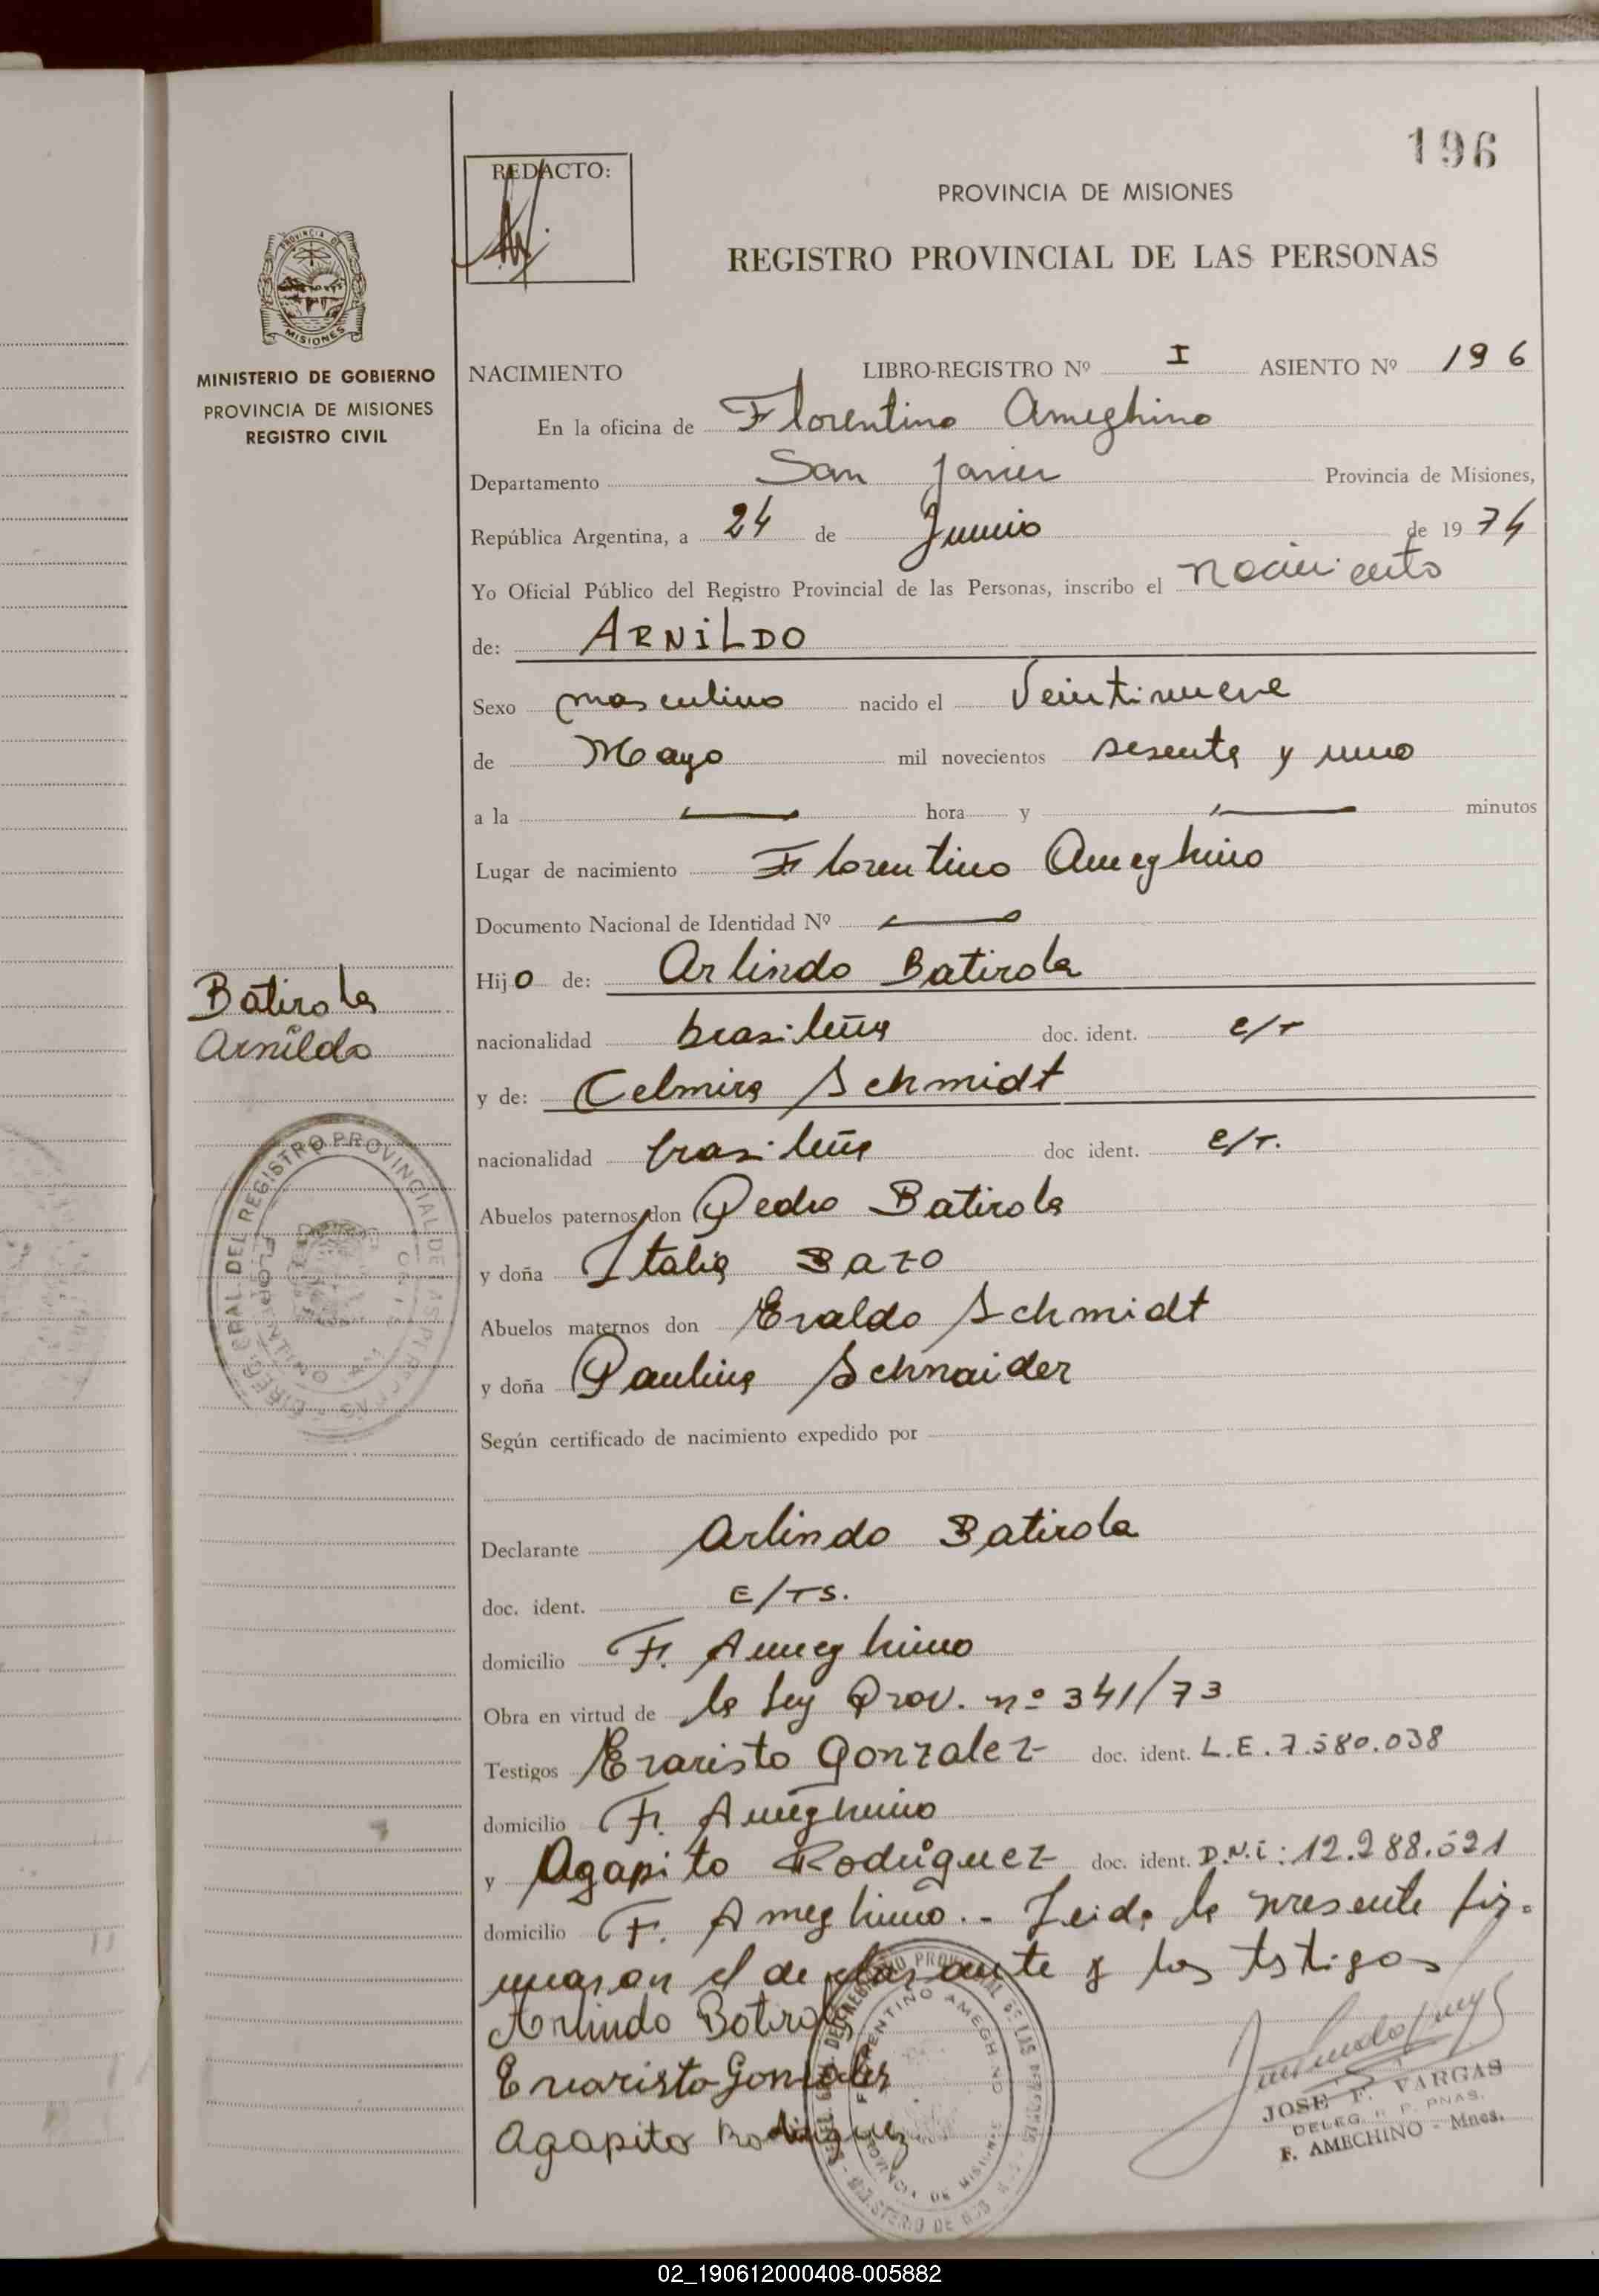 196
REDACTO:
PROVINCIA DE MISIONES
REGISTRO PROVINCIAL DE LAS PERSONAS
PROVINCIA DE
MISIONES
MINISTERIO DE GOBIERNO
PROVINCIA DE MISIONES
REGISTRO CIVIL
NACIMIENTO LIBRO-REGISTRO Nº I ASIENTO Nº 196
En la oficina de Florentino Ameghino
Departamento San Javier Provincia de Misiones,
República Argentina, a 24 de Junio de 1974
Yo Oficial Público del Registro Provincial de las Personas, inscribo el nacimiento
de: ARNILDO
Sexo masculino nacido el Veintinueve
de Mayo mil novecientos sesenta y uno
a la — hora y — minutos
Lugar de nacimiento Florentino Ameghino
Documento Nacional de Identidad Nº —
Hijo de: Arlindo Batirola
Batirola
Arnildo
nacionalidad brasileña doc. ident. e/t
y de: Celmira Schmidt
nacionalidad brasileña doc ident. e/t.
Abuelos paternos don Pedro Batirola
y doña Italia Bazo
Abuelos maternos don Evaldo Schmidt
y doña Paulina Schnaider
Según certificado de nacimiento expedido por
Declarante Arlindo Batirola
doc. ident. E/TS.
domicilio F. Ameghino
Obra en virtud de la Ley Prov. nº 341/73
Testigos Evaristo Gonzalez doc. ident. L.E. 7.580.038
domicilio F. Ameghino
y Agapito Rodriguez doc. ident. D.N.i: 12.288.521
domicilio F. Ameghino.- Leida la presente fir-
maron el declarante y los testigos
Arlindo Batirola
Evaristo Gonzalez
Agapito Rodriguez
FLORENTINO AMEGHINO
PROVINCIA DE MISIONES
JOSE F. VARGAS
DELEG. R. P. PNAS.
F. AMECHINO - Mnes.
02_190612000408-005882